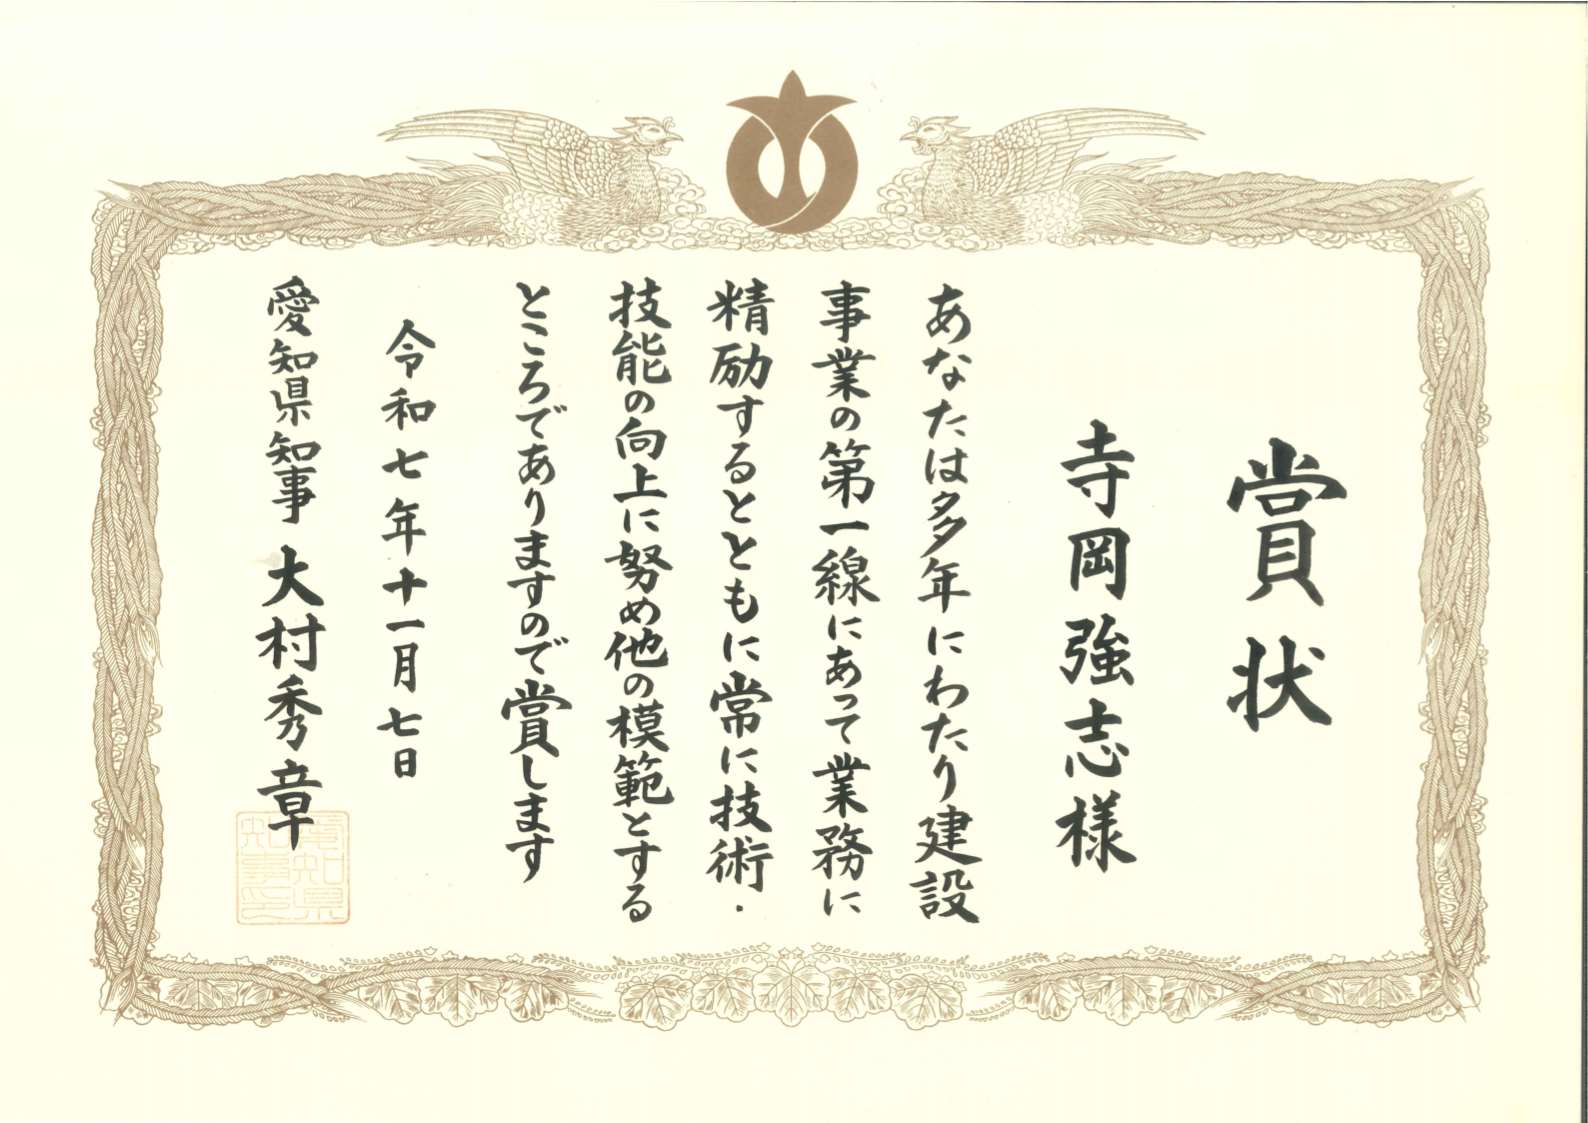 賞状
寺岡強志様
あなたは多年にわたり建設
事業の第一線にあって業務に
精励するとともに常に技術・
技能の向上に努め他の模範とする
ところでありますので賞します
令和七年十一月七日
愛知県知事 大村秀章
愛知県
知事之印